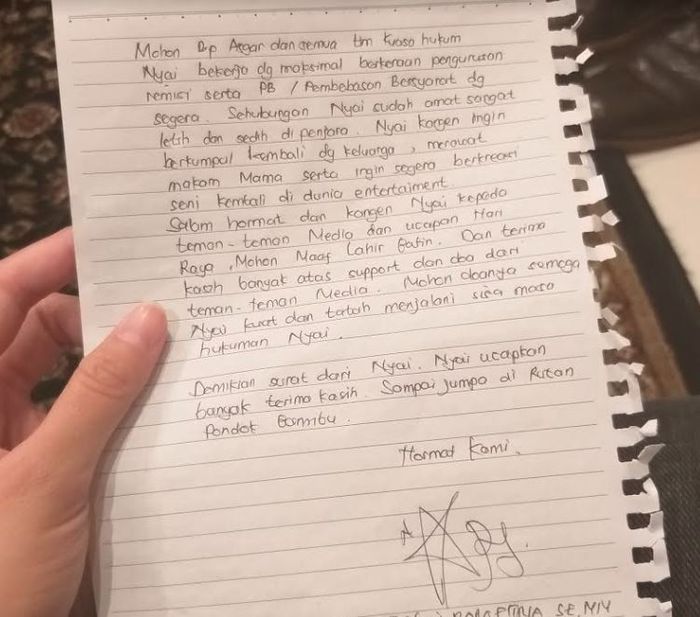 Mohon Bp Asgar dan semua tim Kuasa hukum
Nyai bekerja dg maksimal berkenaan pengurusan
remisi serta PB / Pembebasan Bersyarat dg
segera. Sehubungan Nyai sudah amat sangat
letih dan sedih di penjara. Nyai kangen ingin
berkumpul kembali dg keluarga, merawat
makam Mama serta ingin segera berkreasi
seni kembali di dunia entertaiment.
Salam hormat dan kangen Nyai kepada
teman-teman Media dan ucapan Hari
Raya, Mohon Maaf Lahir Batin. Dan terima
kasih banyak atas support dan doa dari
teman-teman Media. Mohon doanya semoga
Nyai kuat dan tabah menjalani sisa masa
hukuman Nyai.
Demikian surat dari Nyai. Nyai ucapkan
banyak terima kasih. Sampai jumpa di Rutan
Pondok Bambu.
Hormat Kami,
SE, MM